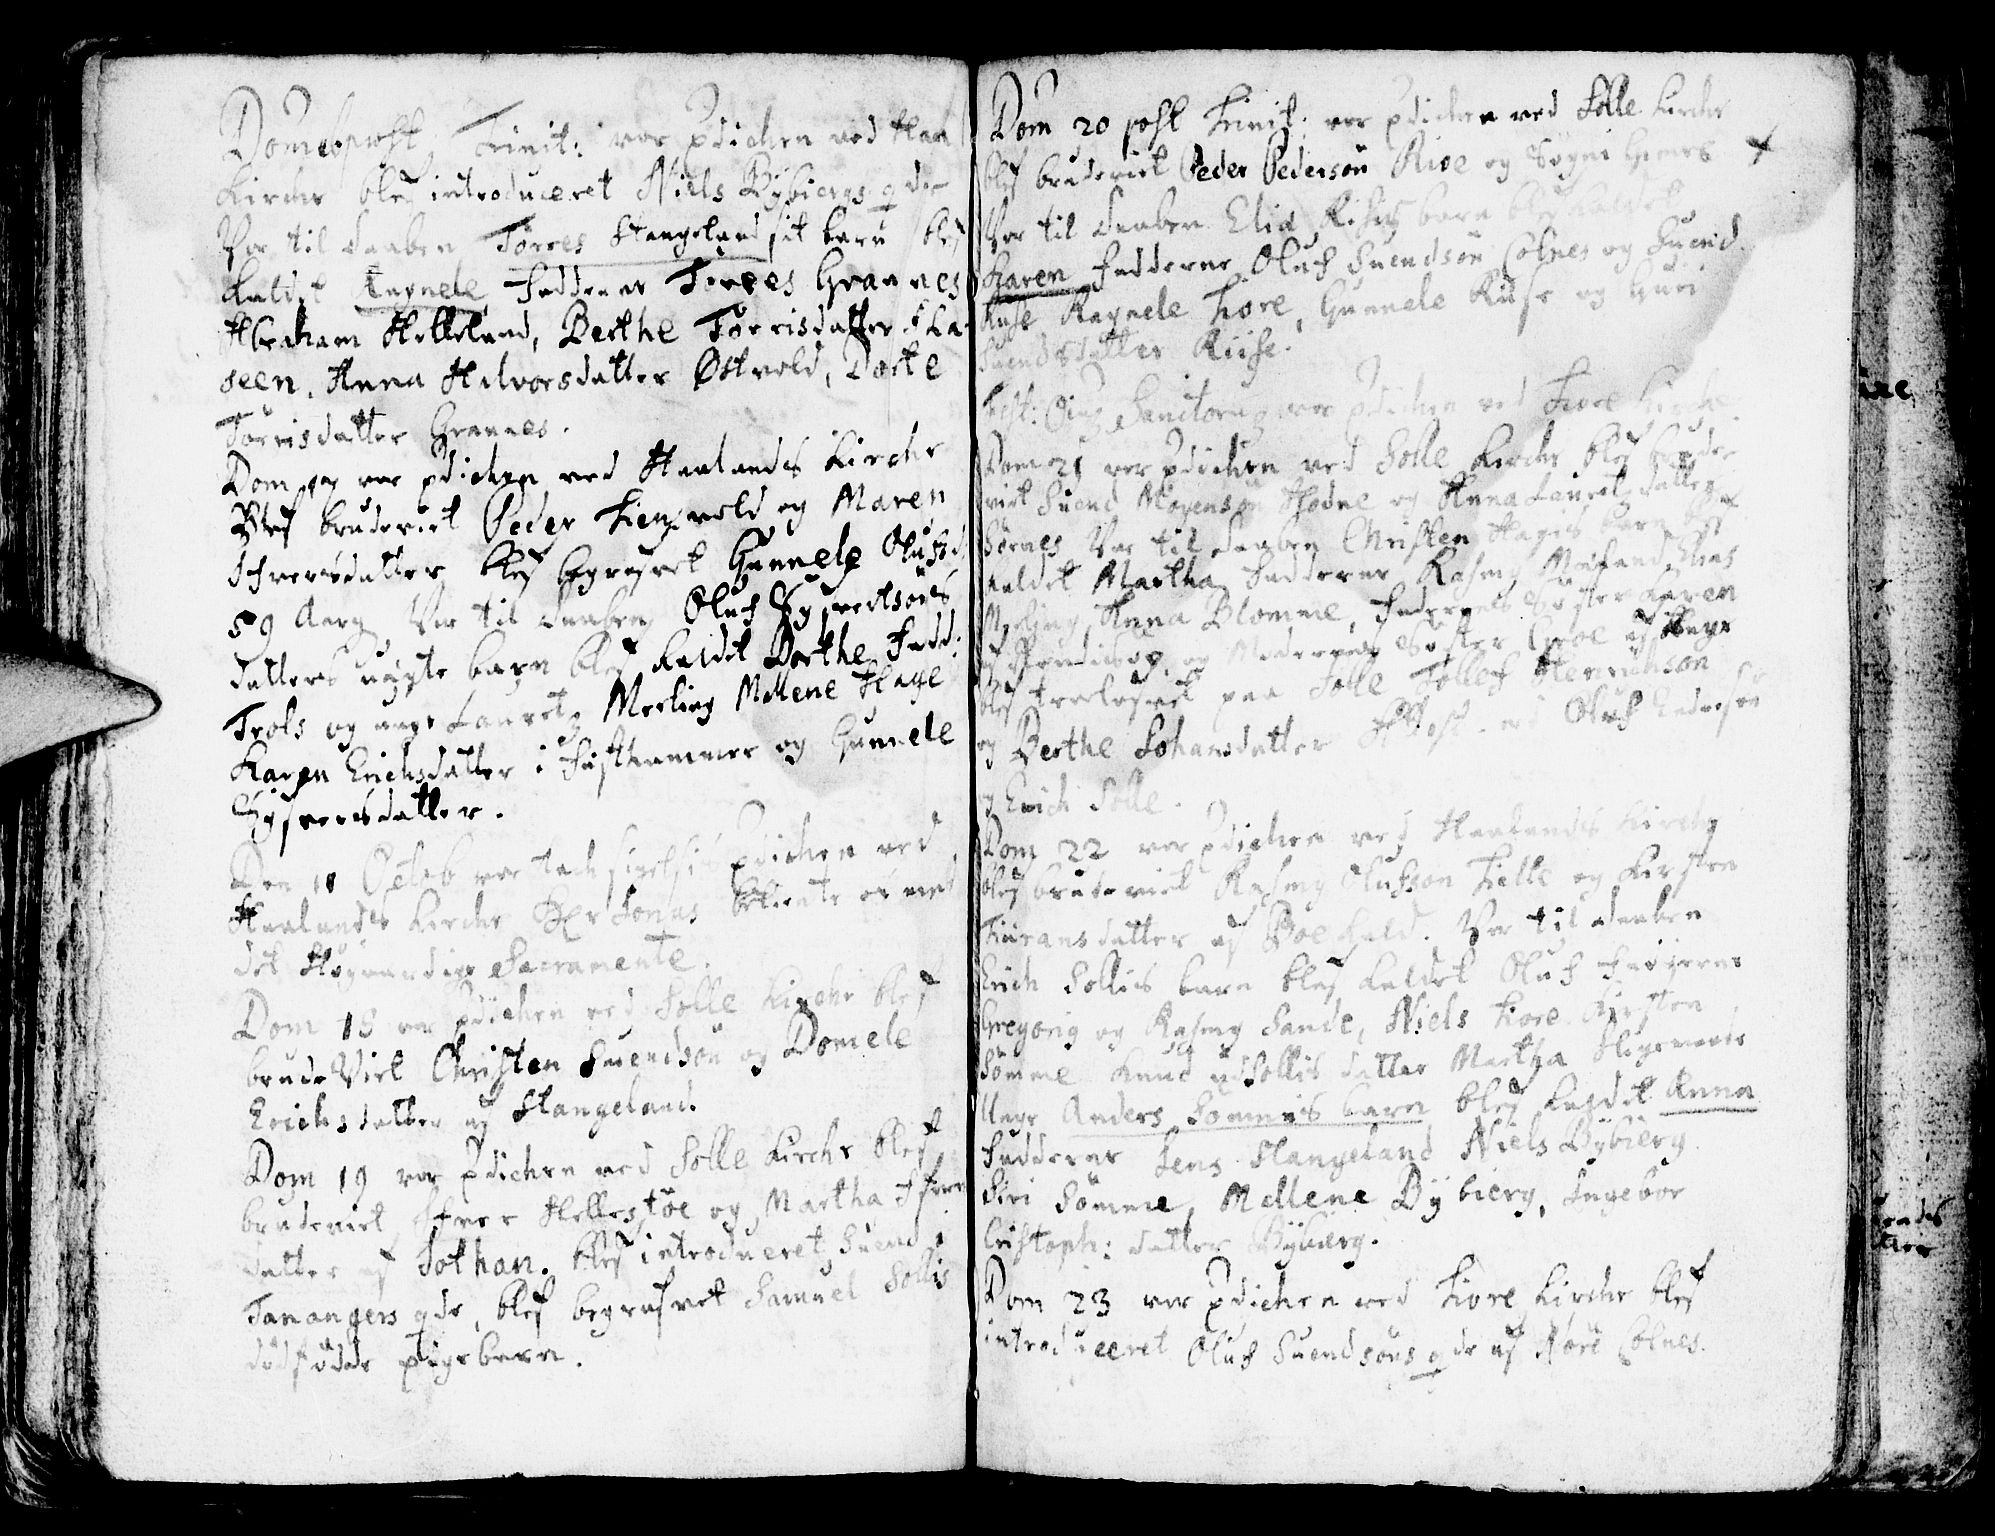 Dom 16 post Trinit: var Pdichen ved Haa
Kirche blef introduceret Niels Bÿbiergs qde
Var til daaben Törres Stangeland sit barn blef
kaldet Ragnele Fadderne Torres Grannes
Abraham Helleland, Berthe Törrisdatter Ska
seen, Anna Halvorsdatter Østvold, Dorte
Törrisdatter Grannes.
Dom 17 var pdichen ved Haalands Kirche
Blef brudeviet Peder Tienxvold og Maren
Ifversdatter blef begrafvet Gunnele Olufsd
59 Aarg Var til daaben Oluf Sÿfvertsöns
datters uägte barn blef kaldet Dorthe Fadd:
Trols og unge Lauritz Meeling Mallene Hage
Karen Erichsdatter i Fisthammer og Gunnele
Sÿfversdatter.
Den 11 Octob var tachsigelsis pdichen ved
Haalands Kirche Her Jonas betiente
det Høyværdige Sacramente.
Dom 18 var pdichen ved Solle Kirche blef
brude Viet Christen Suendsön og Domele
Erichsdatter af Stangeland.
Dom 19 var pdichen ved Solle Kirche blef
brudeviet Ifver Hellestöe og Martha Ifvers
datter af Jothan. blef introduceret Suend
Tanangers qde, blef begrafvet Samuel Sollis
dödfödde pigebarn.
Dom 20 post Trinit: var pdichen ved Solle Kirche
blef brudeviet Peder Pedersön Rise og Sygni
Var til daaben Elia Risis barn blef kaldet
Karen Fadderne Oluf Suendsön Colnes og Suend
Ruse Ragnele Tiore, Gunnele Ruse og Guri
Suendsdatter Riise.
Fest: Omn Sanctorum var pdichen ved Tiore Kirche
Dom 21 var pdichen ved Solle Kirche blef brude
viet Suend Mogensön Hodne og Anna Lauritzdatter
Sörnes Var til daaben Christen Hagis barn blef
kaldet Martha Fadderne Rasmg Elias
Meeling, Anna Blomme, Faderens Söster Karen
og Moderens Söster af Hage
blef trolofvet paa Solle Tollef Henrichson
og Berthe Johansdatter Oluf Endresen
og Erich Solle.
Dom 22 var pdichen ved Haalands Kirche
blef brudeviet Rasmg Olufson Tielle og Kirsten
datter af Var til daaben
Erich Sollis barn blef kaldet Oluf Fadderne
Gregorig og Rasmg Sande, Niels Tiore Kirsten
Sömme Knud udSollis datter Martha
Unge Anders Sömmis barn blef kaldet Anna
Fadderne Jens Stangeland Niels Bÿbierg
Siri Sömme, Mallene Bÿbierg, Ingebor
Cristoph: datter Bÿbierg.
Dom 23 var Pdichen ved Tiore Kirche blef
introduceret Oluf Suendsöns qde af Nöre Colnes.